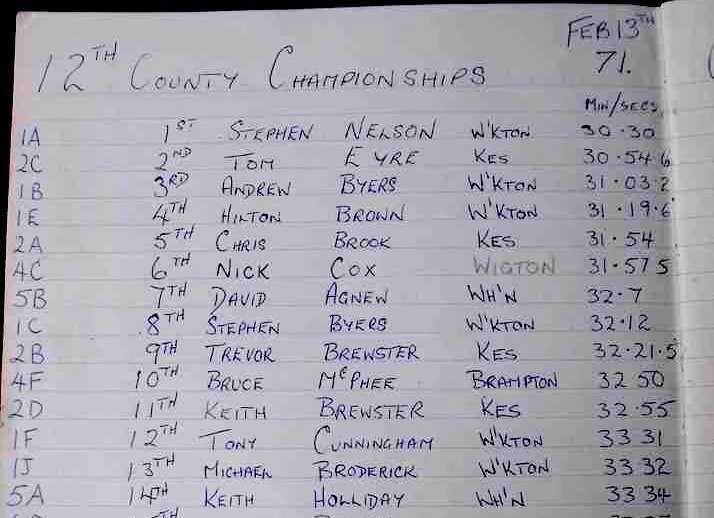 FEB 13TH
12TH COUNTY CHAMPIONSHIPS 71.
MIN/SECS
1A 1ST STEPHEN NELSON W'KTON 30.30
2C 2ND TOM EYRE KES 30.54.6
1B 3RD ANDREW BYERS W'KTON 31.03.2
1E 4TH HILTON BROWN W'KTON 31.19.6
2A 5TH CHRIS BROOK KES 31.54
4C 6TH NICK COX WIGTON 31.57 5
5B 7TH DAVID AGNEW WH'N 32.7
1C 8TH STEPHEN BYERS W'KTON 32.12
2B 9TH TREVOR BREWSTER KES 32.21.5
4F 10TH BRUCE McPHEE BRAMPTON 32 50
2D 11TH KEITH BREWSTER KES 32.55
1F 12TH TONY CUNNINGHAM W'KTON 33 31
1J 13TH MICHAEL BRODERICK W'KTON 33 32
5A 14TH KEITH HOLLIDAY WH'N 33 34